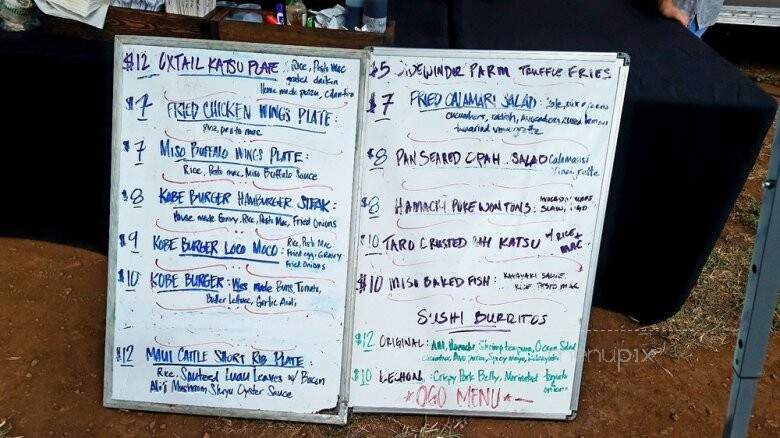 $12 OXTAIL KATSU PLATE: Rice, Pesto Mac
grated daikon
Home made ponzu, cilantro
$7 FRIED CHICKEN WINGS PLATE:
Rice, pesto mac
$7 MISO BUFFALO WINGS PLATE:
Rice, Pesto mac, Miso Buffalo Sauce
$8 KOBE BURGER HAMBURGER STEAK:
House made Gravy, Rice, Pesto Mac, Fried Onions
$9 KOBE BURGER LOCO MOCO: Rice, Pesto Mac
Fried egg, GRAVY
Fried Onions
$10 KOBE BURGER: made Buns, Tomato,
Butter Lettuce, Garlic Aioli
$12 MAUI CATTLE SHORT RIB PLATE:
Rice, Sauteed Luau Leaves w/ Bacon
Ali'i Mushroom, Shoyu Oyster Sauce
$5 SIDEWINDER PARM TRUFFLE FRIES
$7 FRIED CALAMARI SALAD:
cucumbers, radish, Avocado, lemon
vinaigrette
$8 PAN SEARED OPAH SALAD Calamansi
Vinaigrette
$8 HAMACHI POKE WONTONS:
$10 TARO CRUSTED AHI KATSU w/ RICE +
MAC
$10 MISO BAKED FISH:
RICE PESTO MAC
SUSHI BURRITOS
$12 ORIGINAL: Ahi, Hamachi, Shrimp tempura, Ocean Salad
cucumber, Avo, Spicy mayo,
$10 LECHON: Crispy Pork Belly, Marinated tomato
onions
*OGO MENU*
menupix